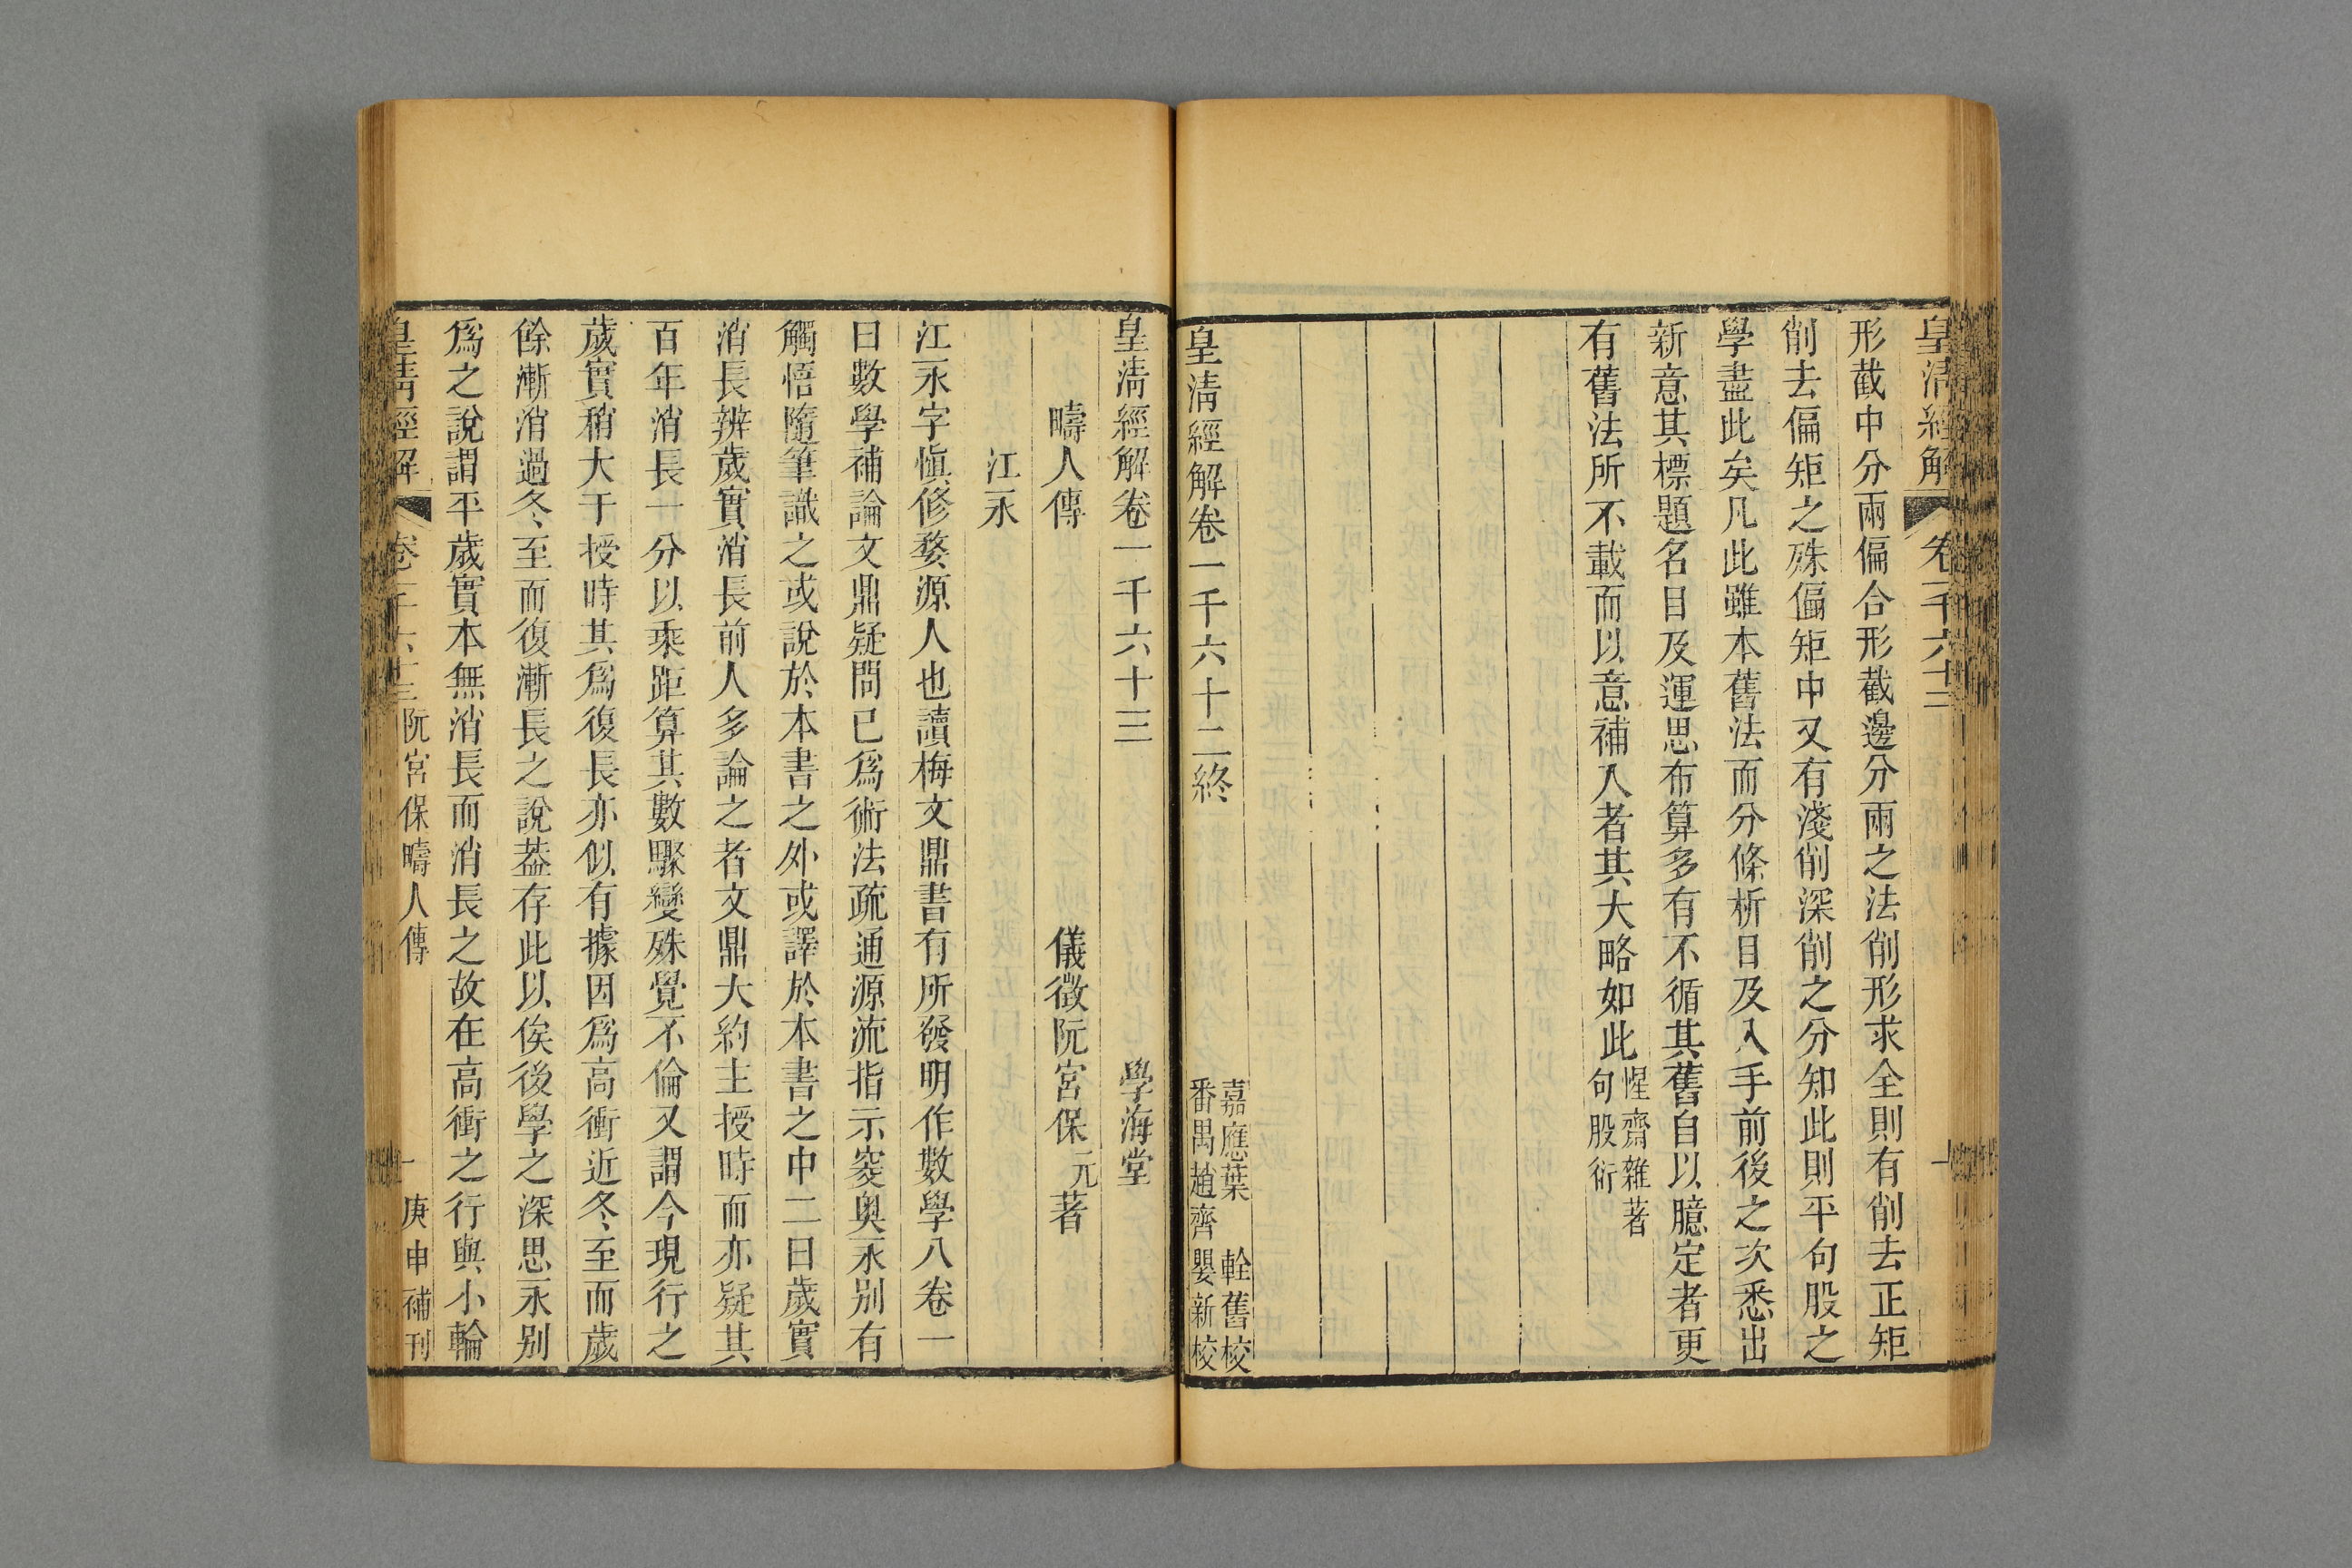 皇淸經解 卷一千六十三
形截中分兩偏合形截邊分兩之法削形求全則有削去正矩
削去偏矩之殊偏矩中又有淺削深削之分知此則平句股之
學盡此矣凡此雖本舊法而分條析目及入手前後之次悉出
新意其標題名目及運思布算多有不循其舊自以臆定者更
有舊法所不載而以意補入者其大略如此
惺齋雜著
句股衍
嘉應葉 輇舊校
番禺趙齊嬰新校
皇淸經解卷一千六十二終
皇淸經解卷一千六十三 學海堂
疇人傳 儀徵阮宮保元著
江永
江永字愼修婺源人也讀梅文鼎書有所發明作數學八卷一
曰數學補論文鼎疑問已爲術法疏通源流指示窔奥永别有
觸悟隨筆識之或說於本書之外或譯於本書之中二曰歲實
消長辨歲實消長前人多論之者文鼎大約主授時而亦疑其
百年消長一分以乘距算其數驟變殊覺不倫又謂今現行之
歲實稍大于授時其爲復長亦似有據因爲高衝近冬至而歲
餘漸消過冬至而復漸長之說葢存此以俟後學之深思永别
爲之說謂平歲實本無消長而消長之故在高衝之行與小輪
皇淸經解 卷一千六十三 阮宮保疇人傳 一 庚申補刊